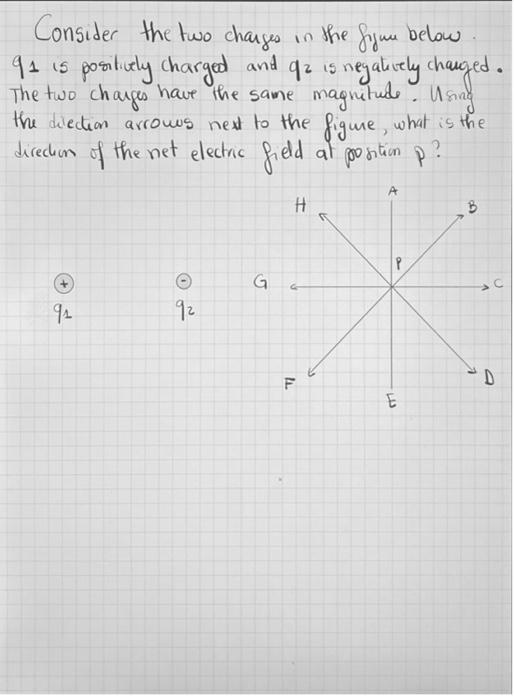 Consider the two charges in the figure below.
q1 is positively charged and q2 is negatively charged.
The two charges have the same magnitude. Using
the direction arrows next to the figure, what is the
direction of the net electric field at position p?
A
H
B
P
+
-
G
C
q1
q2
F
D
E